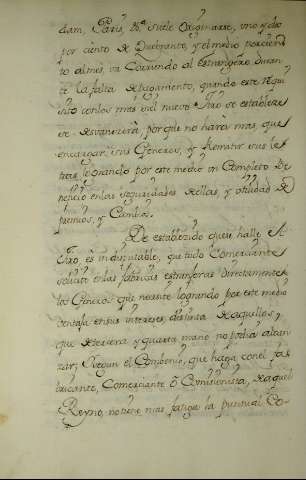 dam, Paris, &ª suele originarse, uno y dos
por ciento de Quebranto, y el medio por cien-
to al mes, va Corriendo al estrangero duran-
te la falta de pagamento, quando este
sito con los mas del nuevo Giro se establez-
ca desvanecerá, porque no hará mas, que
encargar, sus Generos, y Rematir sus le-
tras, logrando por este medio un Completo Be-
neficio en las seguridades de ellas, y utilidad de
premios, y Cambio.
De establecido que se halle el
Giro, es indisputable, que todo Comerciante
solicite en las fabricas estrangeras directamente
los Generos que necesite logrando por este medio
ventajas en sus intereses, distinta de aquellos,
que de tercera y quarta mano no podria alcan-
zar; segun el Combenio, que haga con el fa-
bricante, Comerciante ô Comisionista, de aquel
Reyno, no tiene mas fatiga la puntual Co-